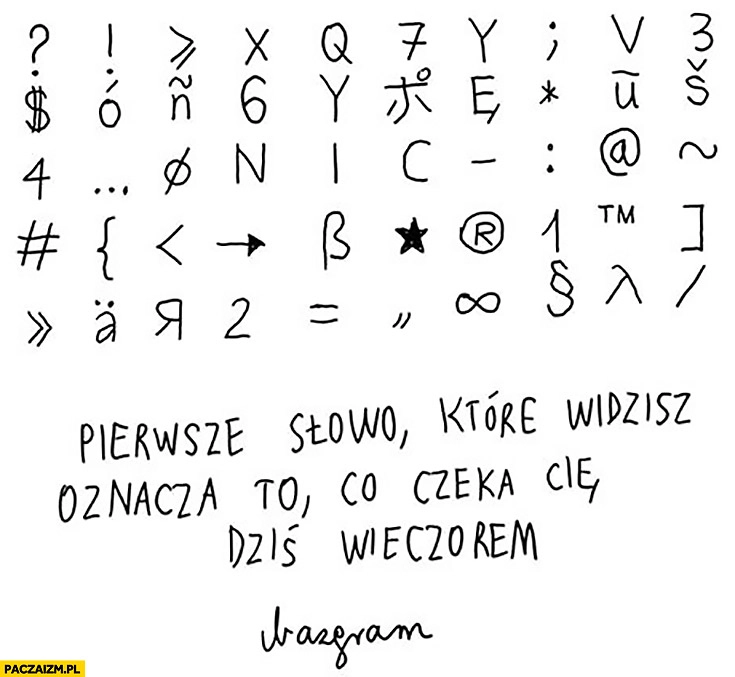 ? ! ⩾ X Q 7 Y ; V 3
$ ó ñ 6 Y ポ Ę * ū Š
4 ... ø N I C - : @ ~
# { < → ß ★ ® 1 ™ ]
» ä Я 2 = „ ∞ § λ /
PIERWSZE SŁOWO, KTÓRE WIDZISZ
OZNACZA TO, CO CZEKA CIĘ
DZIŚ WIECZOREM
bazgram
PACZAIZM.PL